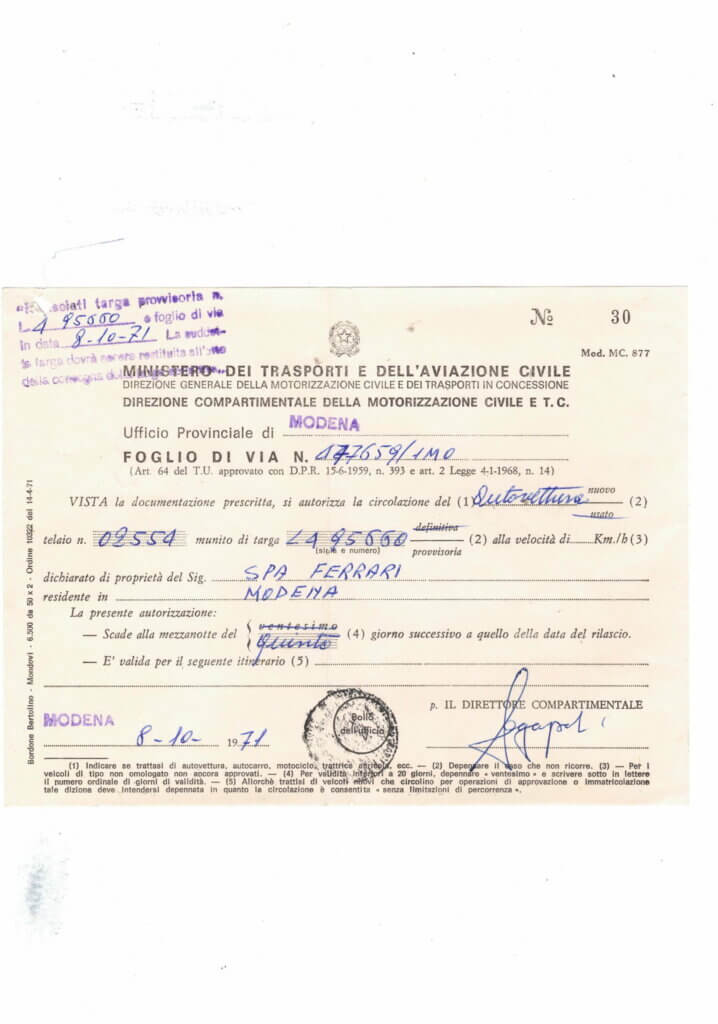 targa provvisoria n.
95660 e foglio di via
in data 8-10-71 La
targa dovrà essere restituita
№ 30
Mod. MC. 877
MINISTERO DEI TRASPORTI E DELL'AVIAZIONE CIVILE
DIREZIONE GENERALE DELLA MOTORIZZAZIONE CIVILE E DEI TRASPORTI IN CONCESSIONE
DIREZIONE COMPARTIMENTALE DELLA MOTORIZZAZIONE CIVILE E T. C.
Ufficio Provinciale di MODENA
FOGLIO DI VIA N. 177659/1MO
(Art. 64 del T.U. approvato con D.P.R. 15-6-1959, n. 393 e art. 2 Legge 4-1-1968, n. 14)
VISTA la documentazione prescritta, si autorizza la circolazione del (1) Autovettura nuovo usato (2)
telaio n. 02554 munito di targa 95660 (sigla e numero) definitiva provvisoria (2) alla velocità di Km./h (3)
dichiarato di proprietà del Sig. SPA FERRARI
residente in MODENA
La presente autorizzazione:
— Scade alla mezzanotte del ventesimo quinto (4) giorno successivo a quello della data del rilascio.
— E' valida per il seguente itinerario (5)
p. IL DIRETTORE COMPARTIMENTALE
MODENA
8-10- 1971
Bollo dell'ufficio
(1) Indicare se trattasi di autovettura, autocarro, motociclo, trattrice agricola, ecc. — (2) Depennare il caso che non ricorre. (3) — Per i
veicoli di tipo non omologato non ancora approvati. — (4) Per validità inferiori a 20 giorni, depennare « ventesimo » e scrivere sotto in lettere
il numero ordinale di giorni di validità. — (5) Allorchè trattisi di veicoli nuovi che circolino per operazioni di approvazione o immatricolazione
tale dizione deve intendersi depennata in quanto la circolazione è consentita « senza limitazioni di percorrenza ».
Bordone Bertolino - Mondovì - 6.300 da 50 x 2 - Ordine 10322 del 14-4-71